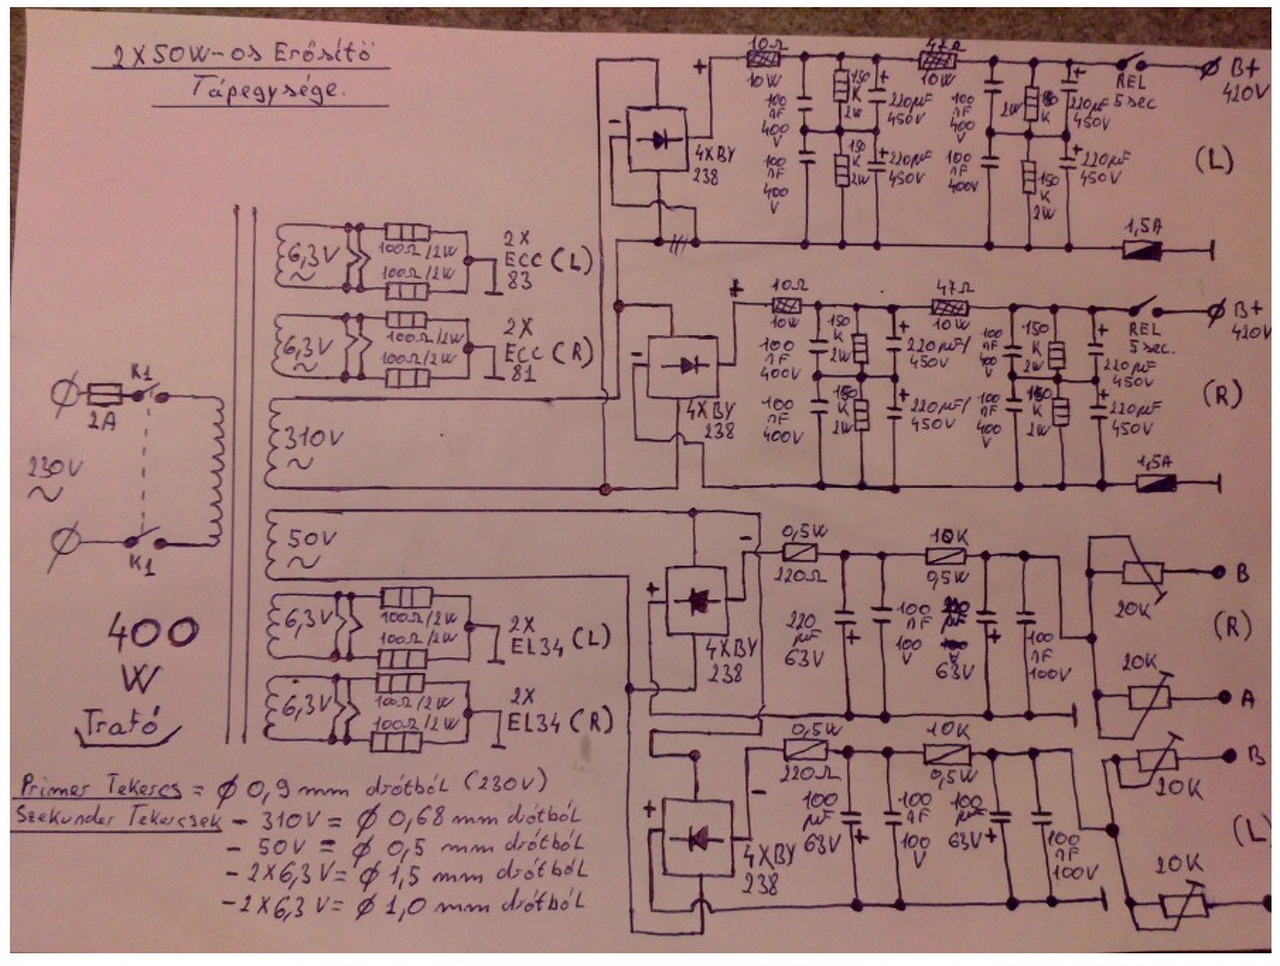 2X50W-os Erősítő
Tápegysége.
10Ω
10W
100
nF
400
V
150
K
2W
+
220µF
450V
47Ω
10W
100
nF
400
V
2W
K
+
220µF
450V
REL
5 sec
B+
420V
-
+
4XBY
238
100
nF
400
V
150
K
2W
+
220µF
450V
100
nF
400V
150
K
2W
+
220µF
450V
(L)
1,5A
6,3V
~
100Ω/2W
100Ω/2W
2X
ECC (L)
83
6,3V
~
100Ω/2W
100Ω/2W
2X
ECC (R)
81
310V
~
-
+
4XBY
238
10Ω
10W
100
nF
400V
150
K
2W
+
220µF/
450V
47Ω
10W
100
nF
400
V
150
K
2W
+
220µF
450V
REL
5 sec.
B+
420V
100
nF
400V
150
K
2W
+
220µF/
450V
100
nF
400
V
150
K
2W
+
220µF
450V
(R)
1,5A
K1
2A
230V
~
K1
400
W
Trafó
50V
~
6,3V
~
100Ω/2W
100Ω/2W
2X
EL34 (L)
6,3V
~
100Ω/2W
100Ω/2W
2X
EL34 (R)
+
-
4XBY
238
0,5W
220Ω
220
µF
63V
+
100
nF
100
V
10K
0,5W
63V
+
100
nF
100V
20K
B
(R)
20K
A
+
-
4XBY
238
0,5W
220Ω
100
µF
63V
+
100
nF
100
V
10K
0,5W
100
µF
63V
+
100
nF
100V
20K
B
(L)
20K
Primer Tekercs = Ø 0,9 mm drótból (230V)
Szekunder Tekercsek - 310V = Ø 0,68 mm drótból
- 50V = Ø 0,5 mm drótból
- 2X6,3V = Ø 1,5 mm drótból
- 2X6,3V = Ø 1,0 mm drótból